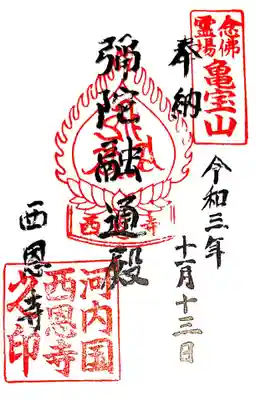 念佛
霊場
亀宝山
奉納
令和三年
十一月十三日
弥陀融通殿
西恩寺
西 寺
河内国
西恩寺
之印